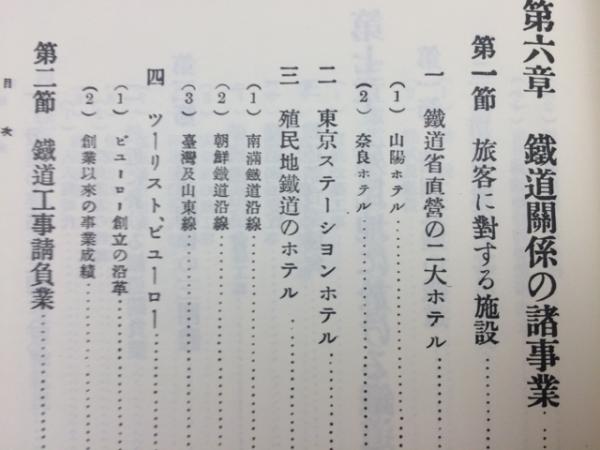 第六章 鐵道關係の諸事業
第一節 旅客に對する施設
一 鐵道省直營の二大ホテル
(1) 山陽ホテル
(2) 奈良ホテル
二 東京ステーションホテル
三 殖民地鐵道のホテル
(1) 南滿鐵道沿線
(2) 朝鮮鐵道沿線
(3) 臺灣及山東線
四 ツーリスト、ビューロー
(1) ビューロー創立の沿革
(2) 創業以來の事業成績
第二節 鐵道工事請負業
目次